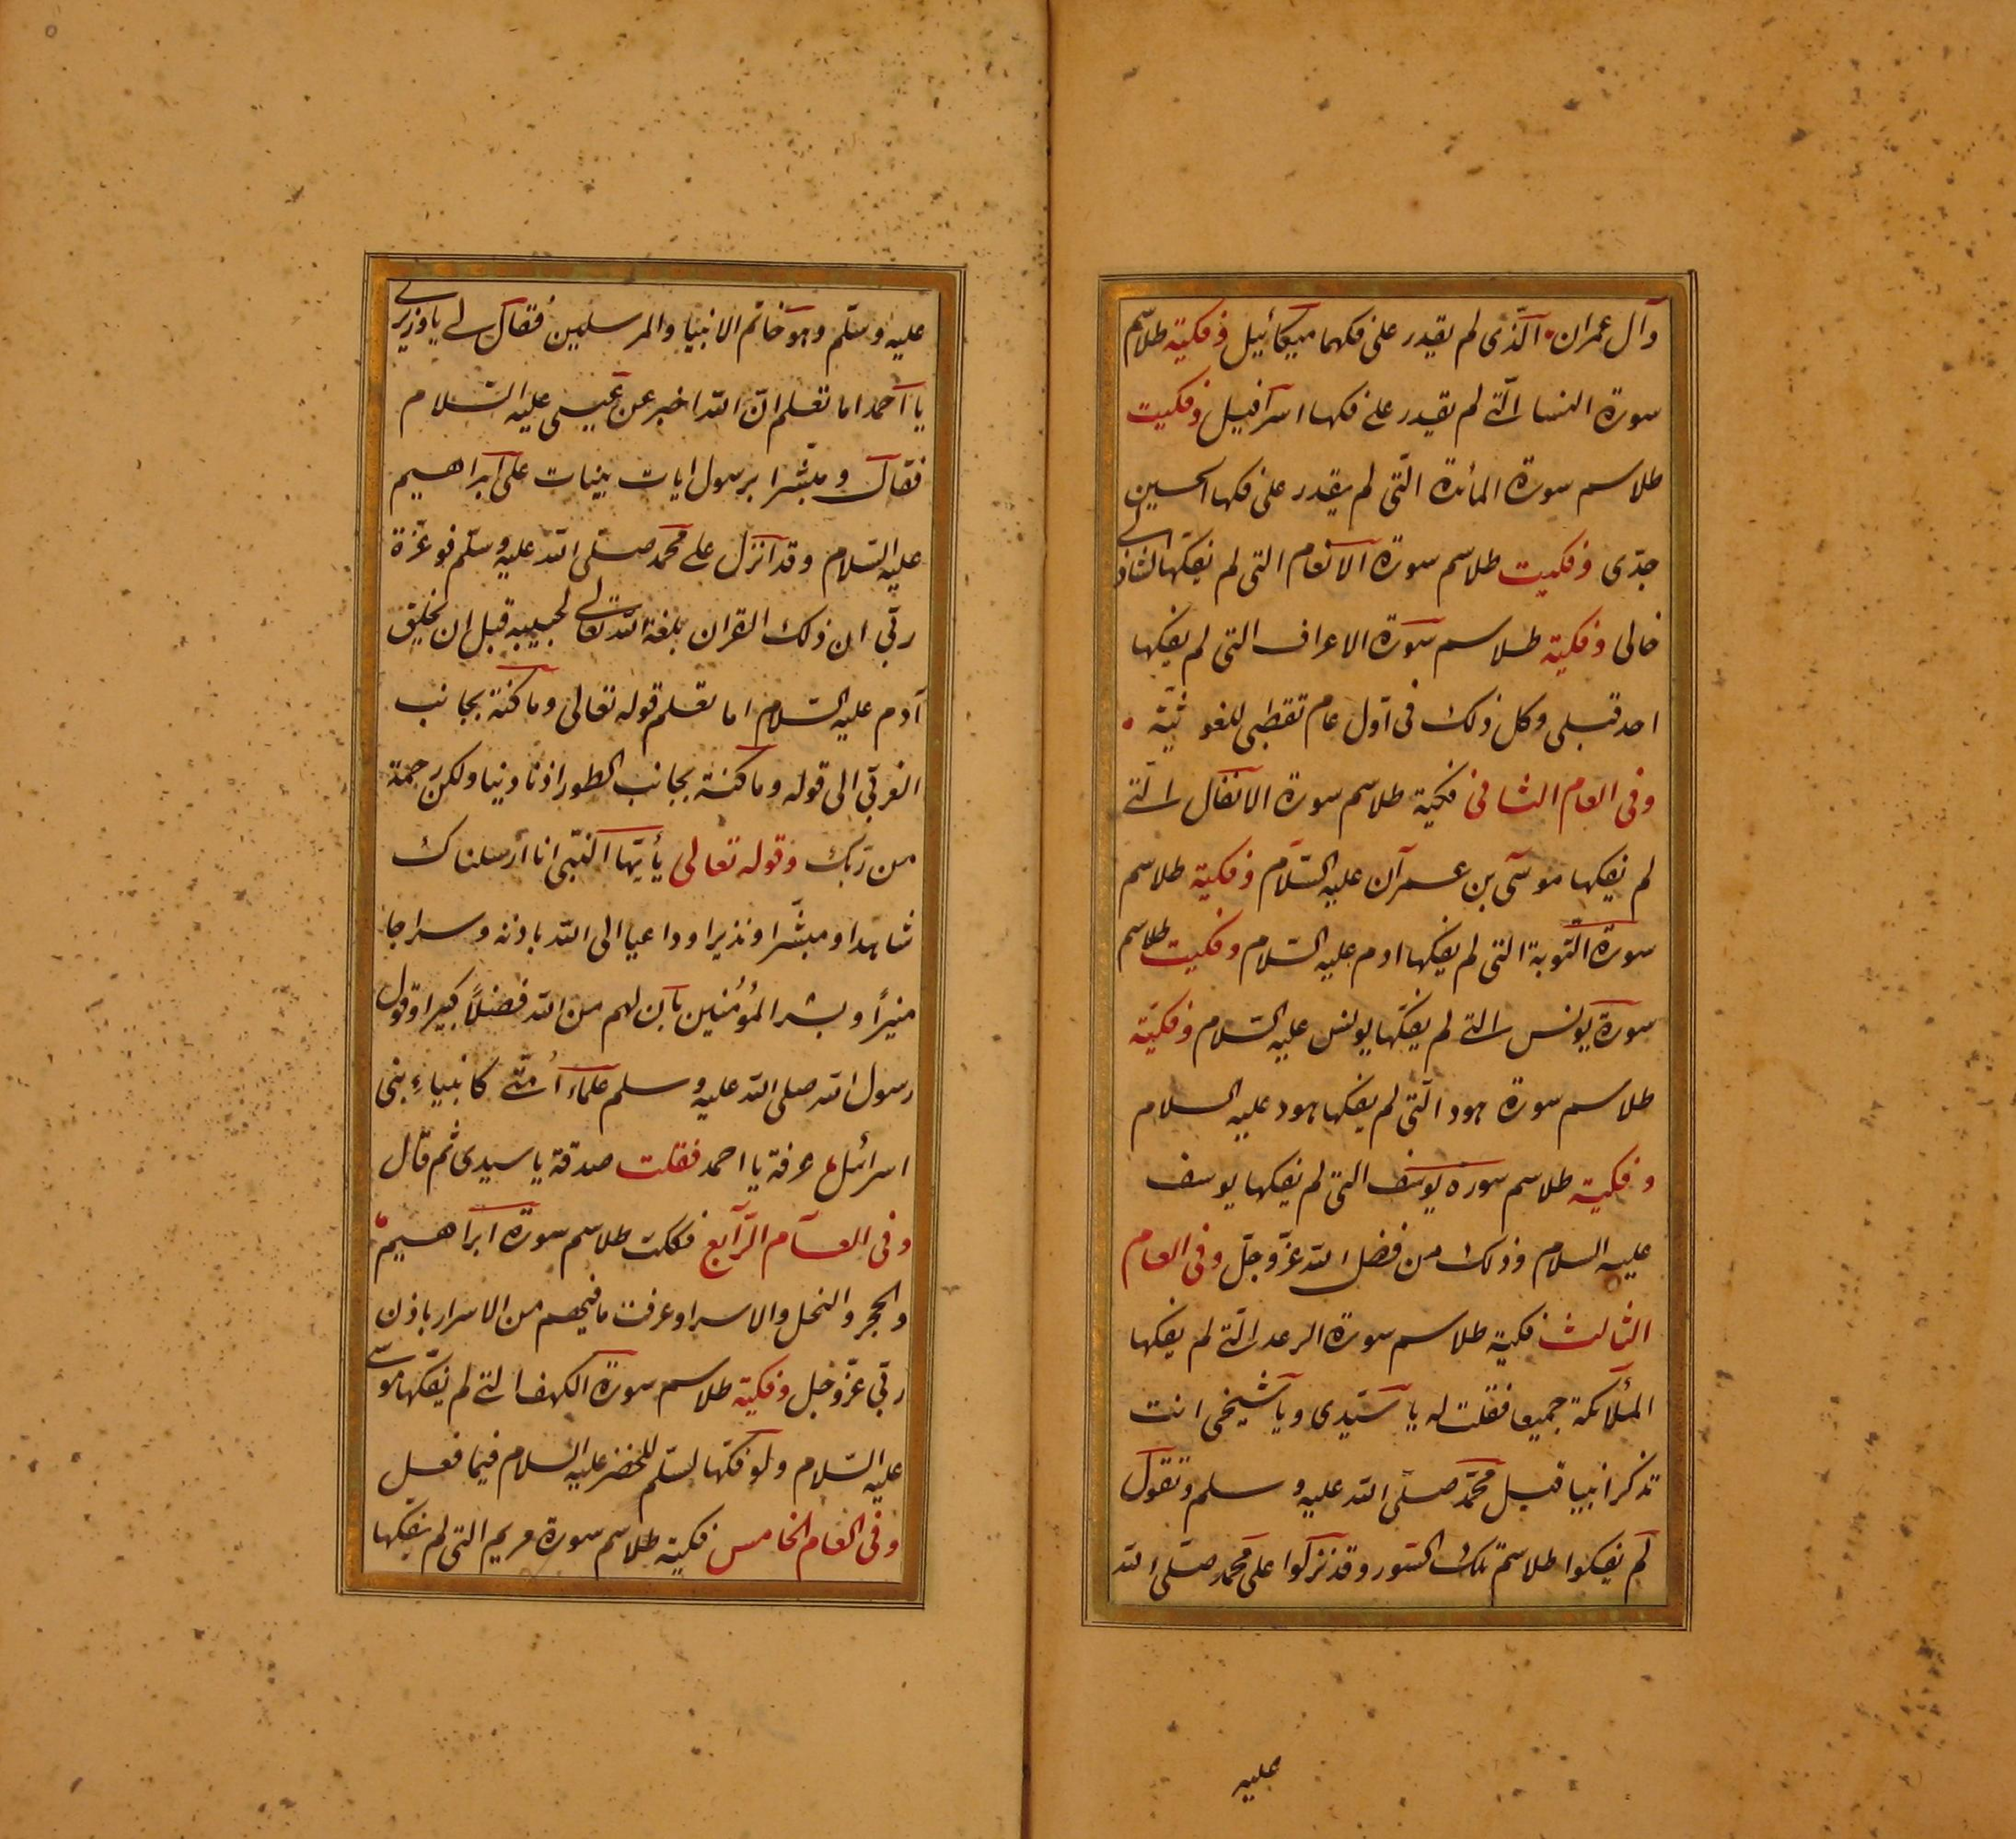 وآل عمران الذى لم يقدر على فكهما ميكائيل وفكية طلاسم
سورة النسا الّتے لم يقدر علے فكها اسرافيل وفكيت
طلاسم سورة المائدة التّى لم يقدر على فكها الحسين
جدّى وفكيت طلاسم سورة الانعام التى لم يفكّها الشاذلے
خالى وفكية طلاسم سورة الاعراف التى لم يفكها
احد قبلى وكل ذلك فى اوّل عام تقطبى للغوثيّة
وفى العام الثانى فكية طلاسم سورة الانفال الّتے
لم يفكها موسى بن عمران عليه السّلام وفكية طلاسم
سورة التّوبة التى لم يفكها ادم عليه السّلام وفكيت طلاسم
سورة يونس الّتے لم يفكّها يونس عليه السّلام وفكيّة
طلاسم سورة هود الّتى لم يفكها هود عليه السلام
وفكية طلاسم سوره يوسف التى لم يفكها يوسف
عليه السلام وذلك من فضل الله عزّ وجلّ وفى العام
الثالث فكية طلاسم سورة الرعد الّتے لم يفكها
الملائكة جميعا فقلت له يا سيّدى ويا شيخى انت
تذكر انبيا قبل محمّد صلّى الله عليه وسلم وتقول
لم يفكوا طلاسم تلك السّور وقد نزلوا على محمد صلّى الله
عليه
عليه وسلّم وهو خاتم الانبيا والمرسلين فقال لے يا وزيرے
يا احمد اما تعلم انّ الله اخبر عن عيسى عليه السّلام
فقال ومبشّرا برسول ايات بينات على ابراهيم
عليه السّلام وقد انزل علے محمد صلّى الله عليه وسلّم فوعزّة
ربّى ان ذلك القران بلغة الله تعالے لحبيبه قبل ان يخلق
آدم عليه السّلام اما تعلم قوله تعالى وما كنة بجانب
الغربّى الى قوله وما كنة بجانب الطور اذ نادينا ولكن رحمة
من رّبك وقوله تعالى يأيّها النّبى انا أرسلناك
شاهدا ومبشّرا ونذيرا وداعيا الى الله باذنه وسراجا
منيراً وبشر المُؤمنين بان لهم من الله فضلاً كبيرا وقول
رسول الله صلى الله عليه وسلم علماء اُمّتے كانبياءِ بنى
اسرائل عرفة يا احمد فقلت صدقة يا سيدى ثم قال
وفى العام الرّابع فككت طلاسم سورة ابراهيم
والحجر والنحل والاسرا وعرفت ما فيهم من الاسرار باذن
ربّى عزّ وجل وفكية طلاسم سورة الكهف التے لم يفكّها موسے
عليه السّلام ولو فكّها لسلّم للخضر عليه السلام فيما فعل
وفى العام الخامس فكية طلاسم سورة مريم التى لم يفكها